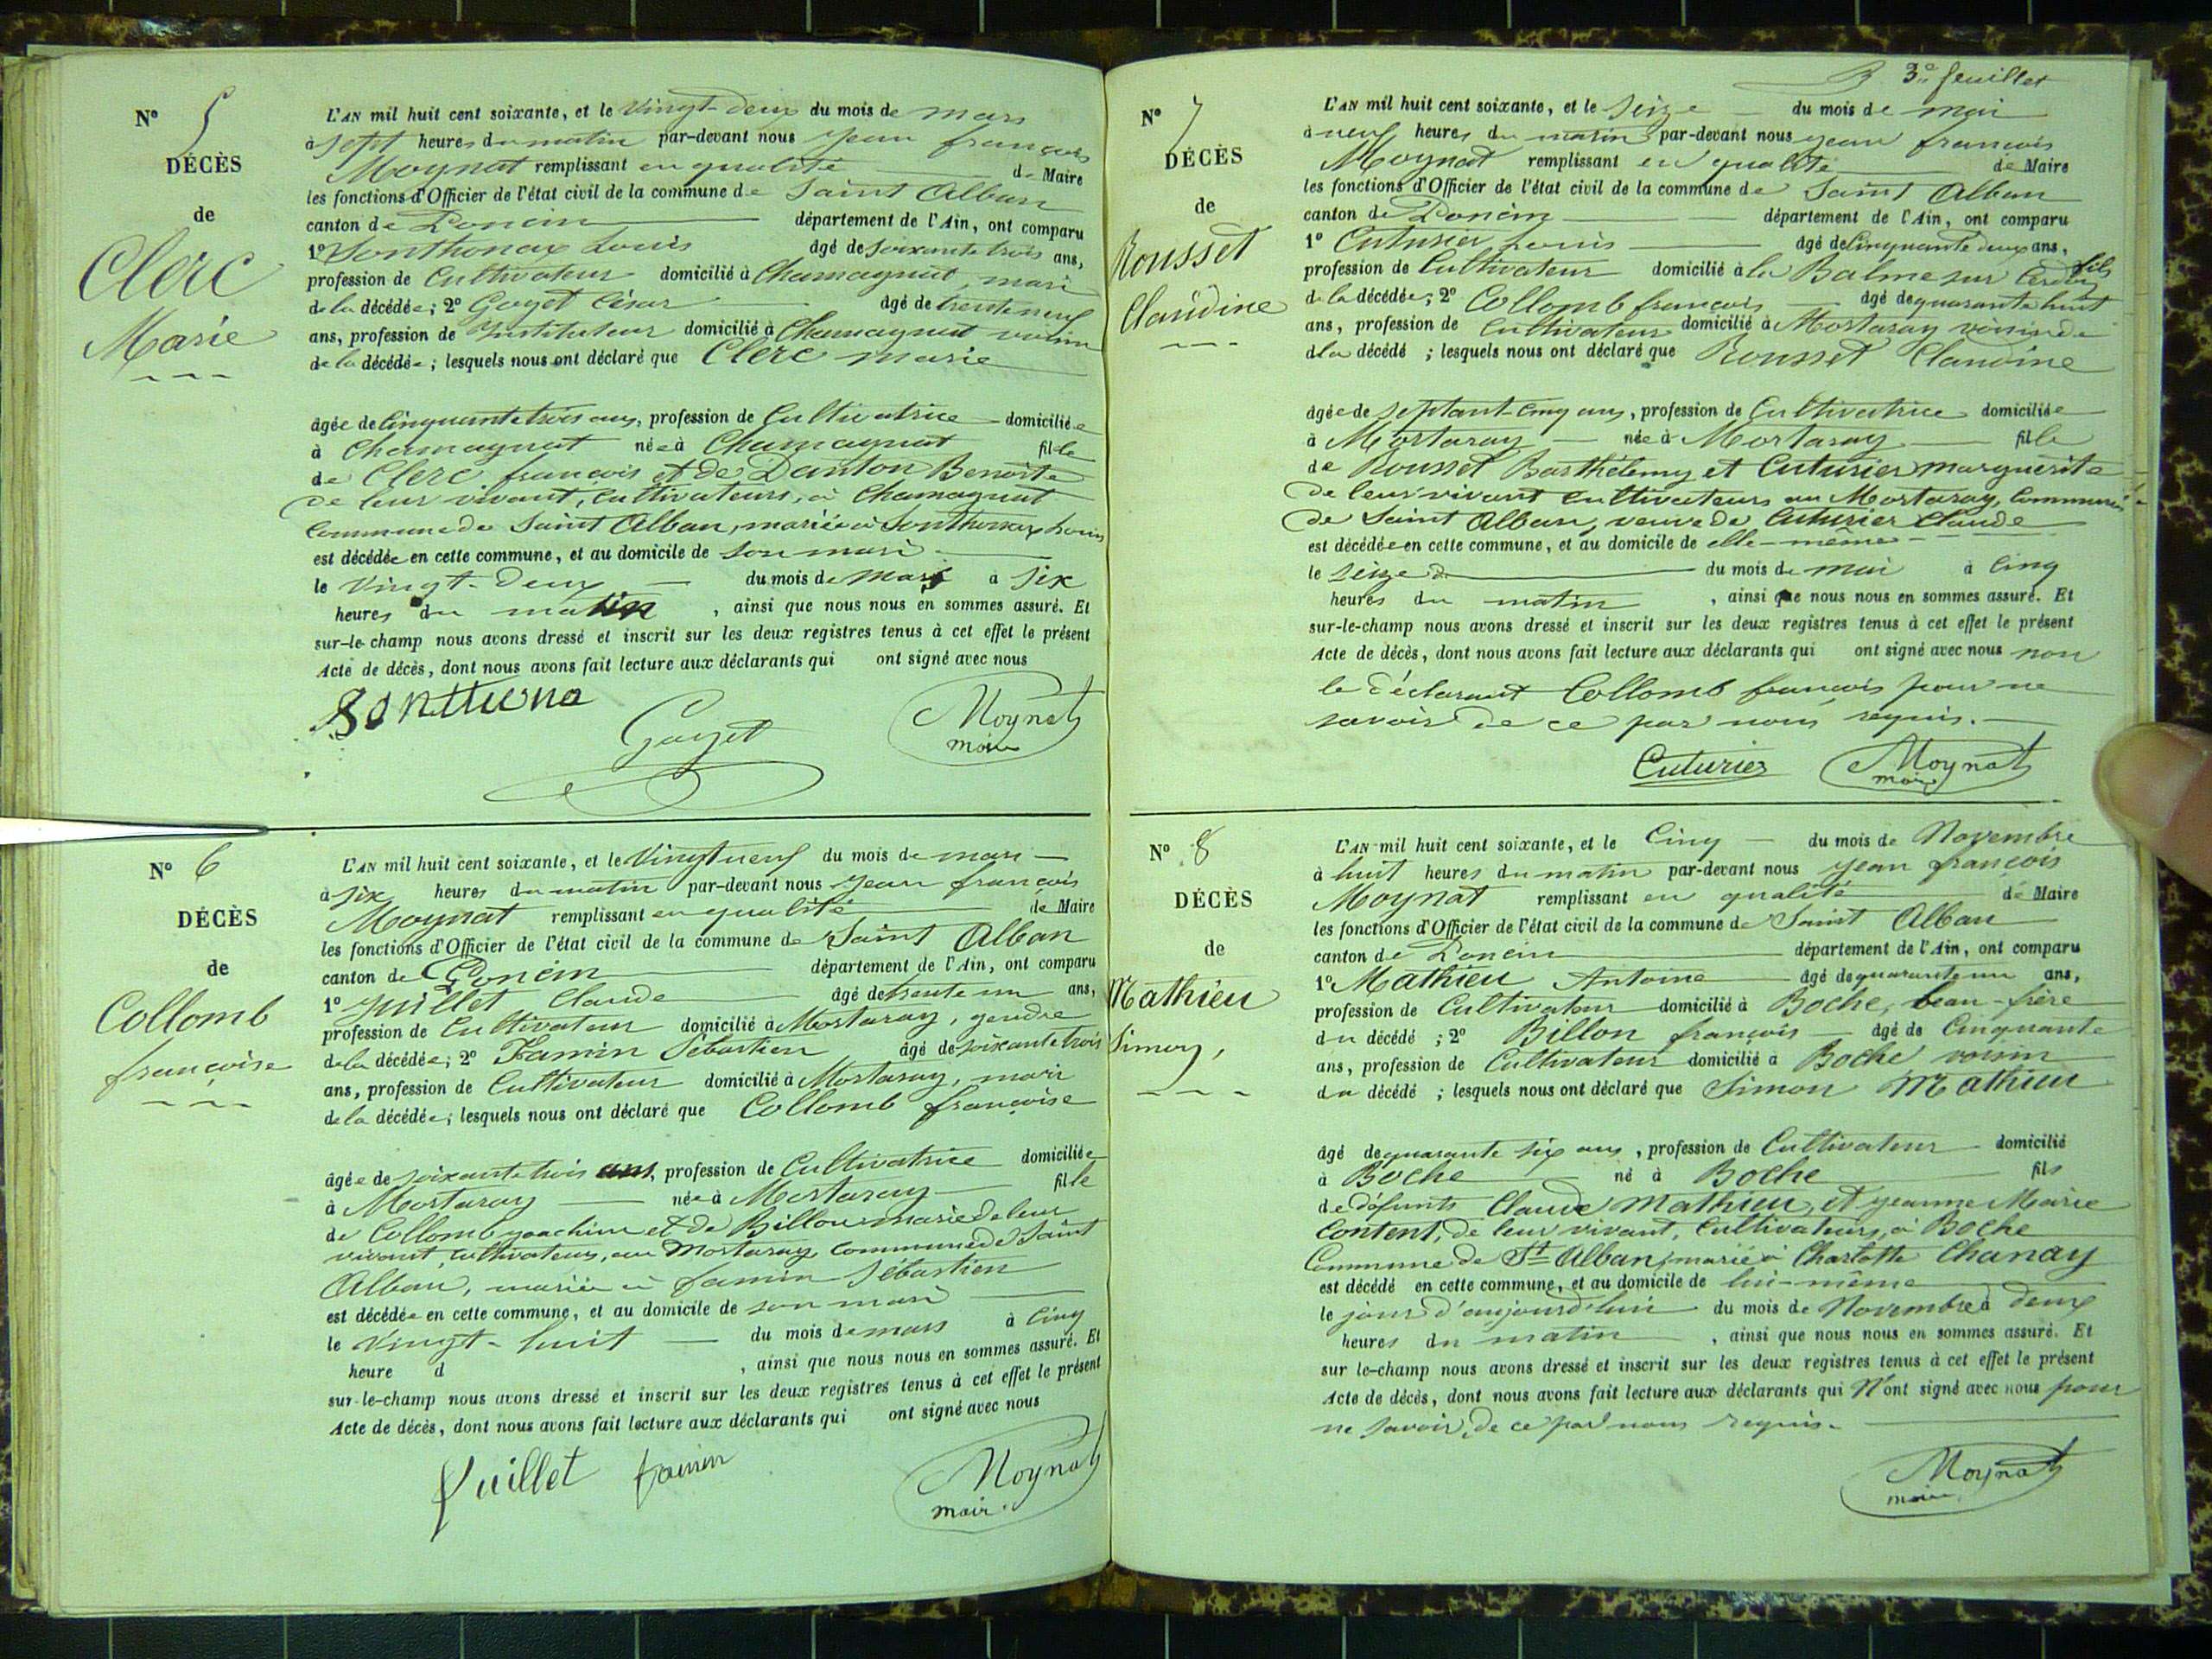 N° 5
DÉCÈS
de
Clerc
Marie
L'AN mil huit cent soixante, et le vingt-deux du mois de mars
à sept heures du matin par-devant nous jean françois
Moynat remplissant en qualité de Maire
les fonctions d'Officier de l'état civil de la commune de Saint Alban
canton de Poncin département de l'Ain, ont comparu
1° Sonthonax Louis âgé de soixante trois ans,
profession de Cultivateur domicilié à Chamagnat, mari
de la décédée; 2° Goyet César âgé de trente neuf
ans, profession de Instituteur domicilié à Chamagnat voisin
de la décédée; lesquels nous ont déclaré que Clerc marie
âgée de Cinquante trois ans, profession de Cultivatrice domiciliée
à Chamagnat née à Chamagnat fille
de Clerc françois et de Danton Benoite
de leur vivant, cultivateurs, à Chamagnat
Commune de Saint Alban, mariée à Sonthonax Louis
est décédée en cette commune, et au domicile de son mari
le vingt-deux du mois de mars à six
heures du matin, ainsi que nous nous en sommes assuré. Et
sur-le-champ nous avons dressé et inscrit sur les deux registres tenus à cet effet le présent
Acte de décès, dont nous avons fait lecture aux déclarants qui ont signé avec nous
Goyet Moynat
maire
N° 6
DÉCÈS
de
Collomb
françoise
L'AN mil huit cent soixante, et le vingt neuf du mois de mars
à six heures du matin par-devant nous jean françois
Moynat remplissant en qualité de Maire
les fonctions d'Officier de l'état civil de la commune de Saint Alban
canton de Poncin département de l'Ain, ont comparu
1° juillet Claude âgé de trente un ans,
profession de Cultivateur domicilié à Mortaray, gendre
de la décédée; 2° Famin Sébastien âgé de soixante trois
ans, profession de Cultivateur domicilié à Mortaray, mari
de la décédée; lesquels nous ont déclaré que Collomb françoise
âgée de soixante trois ans, profession de Cultivatrice domiciliée
à Mortaray née à Mortaray fille
de Collomb joachim et de Billon marie de leur
vivant, cultivateurs, au Mortaray commune de Saint
Alban, mariée à famin Sébastien
est décédée en cette commune, et au domicile de son mari
le vingt-huit du mois de mars à cinq
heure d , ainsi que nous nous en sommes assuré. Et
sur-le-champ nous avons dressé et inscrit sur les deux registres tenus à cet effet le présent
Acte de décès, dont nous avons fait lecture aux déclarants qui ont signé avec nous
juillet famin Moynat
maire
3e feuillet
N° 7
DÉCÈS
de
Rousset
Claudine
L'AN mil huit cent soixante, et le seize du mois de mai
à neuf heures du matin par-devant nous jean françois
Moynat remplissant en qualité de Maire
les fonctions d'Officier de l'état civil de la commune de Saint Alban
canton de Poncin département de l'Ain, ont comparu
1° Cuturier Louis âgé de Cinquante deux ans,
profession de Cultivateur domicilié à la Balme sur Cerdon fils
de la décédée; 2° Collomb françois âgé de quarante huit
ans, profession de Cultivateur domicilié à Mortaray voisin de
d la décédé ; lesquels nous ont déclaré que Rousset Claudine
âgée de septant-cinq ans, profession de Cultivatrice domiciliée
à Mortaray née à Mortaray fille
de Rousset Barthélemy et Cuturier marguerite
de leur vivant cultivateurs au Mortaray, Commune
de Saint Alban, veuve de Cuturier Claude
est décédée en cette commune, et au domicile de elle-même
le seize du mois de mai à cinq
heures du matin , ainsi que nous nous en sommes assuré. Et
sur-le-champ nous avons dressé et inscrit sur les deux registres tenus à cet effet le présent
Acte de décès, dont nous avons fait lecture aux déclarants qui ont signé avec nous non
le déclarant Collomb françois pour ne
savoir de ce par nous requis.
Cuturier Moynat
maire
N° 8
DÉCÈS
de
Mathieu
Simon,
L'AN mil huit cent soixante, et le Cinq du mois de Novembre
à huit heures du matin par-devant nous jean françois
Moynat remplissant en qualité de Maire
les fonctions d'Officier de l'état civil de la commune de Saint Alban
canton de Poncin département de l'Ain, ont comparu
1° Mathieu Antoine âgé de quarante un ans,
profession de Cultivateur domicilié à Boche, beau-frère
du décédé ; 2° Billon françois âgé de Cinquante
ans, profession de Cultivateur domicilié à Boche voisin
du décédé ; lesquels nous ont déclaré que Simon Mathieu
âgé de quarante six ans, profession de Cultivateur domicilié
à Boche né à Boche fils
de défunts Claude Mathieu, et jeanne Marie
Content, de leur vivant, Cultivateurs, à Boche
Commune de St Alban, marié à Charlotte Chanay
est décédé en cette commune, et au domicile de lui-même
le jour d'aujourd'hui du mois de Novembre à deux
heures du matin , ainsi que nous nous en sommes assuré. Et
sur le-champ nous avons dressé et inscrit sur les deux registres tenus à cet effet le présent
Acte de décès, dont nous avons fait lecture aux déclarants qui N'ont signé avec nous pour
ne savoir, de ce par nous requis.
Moynat
maire